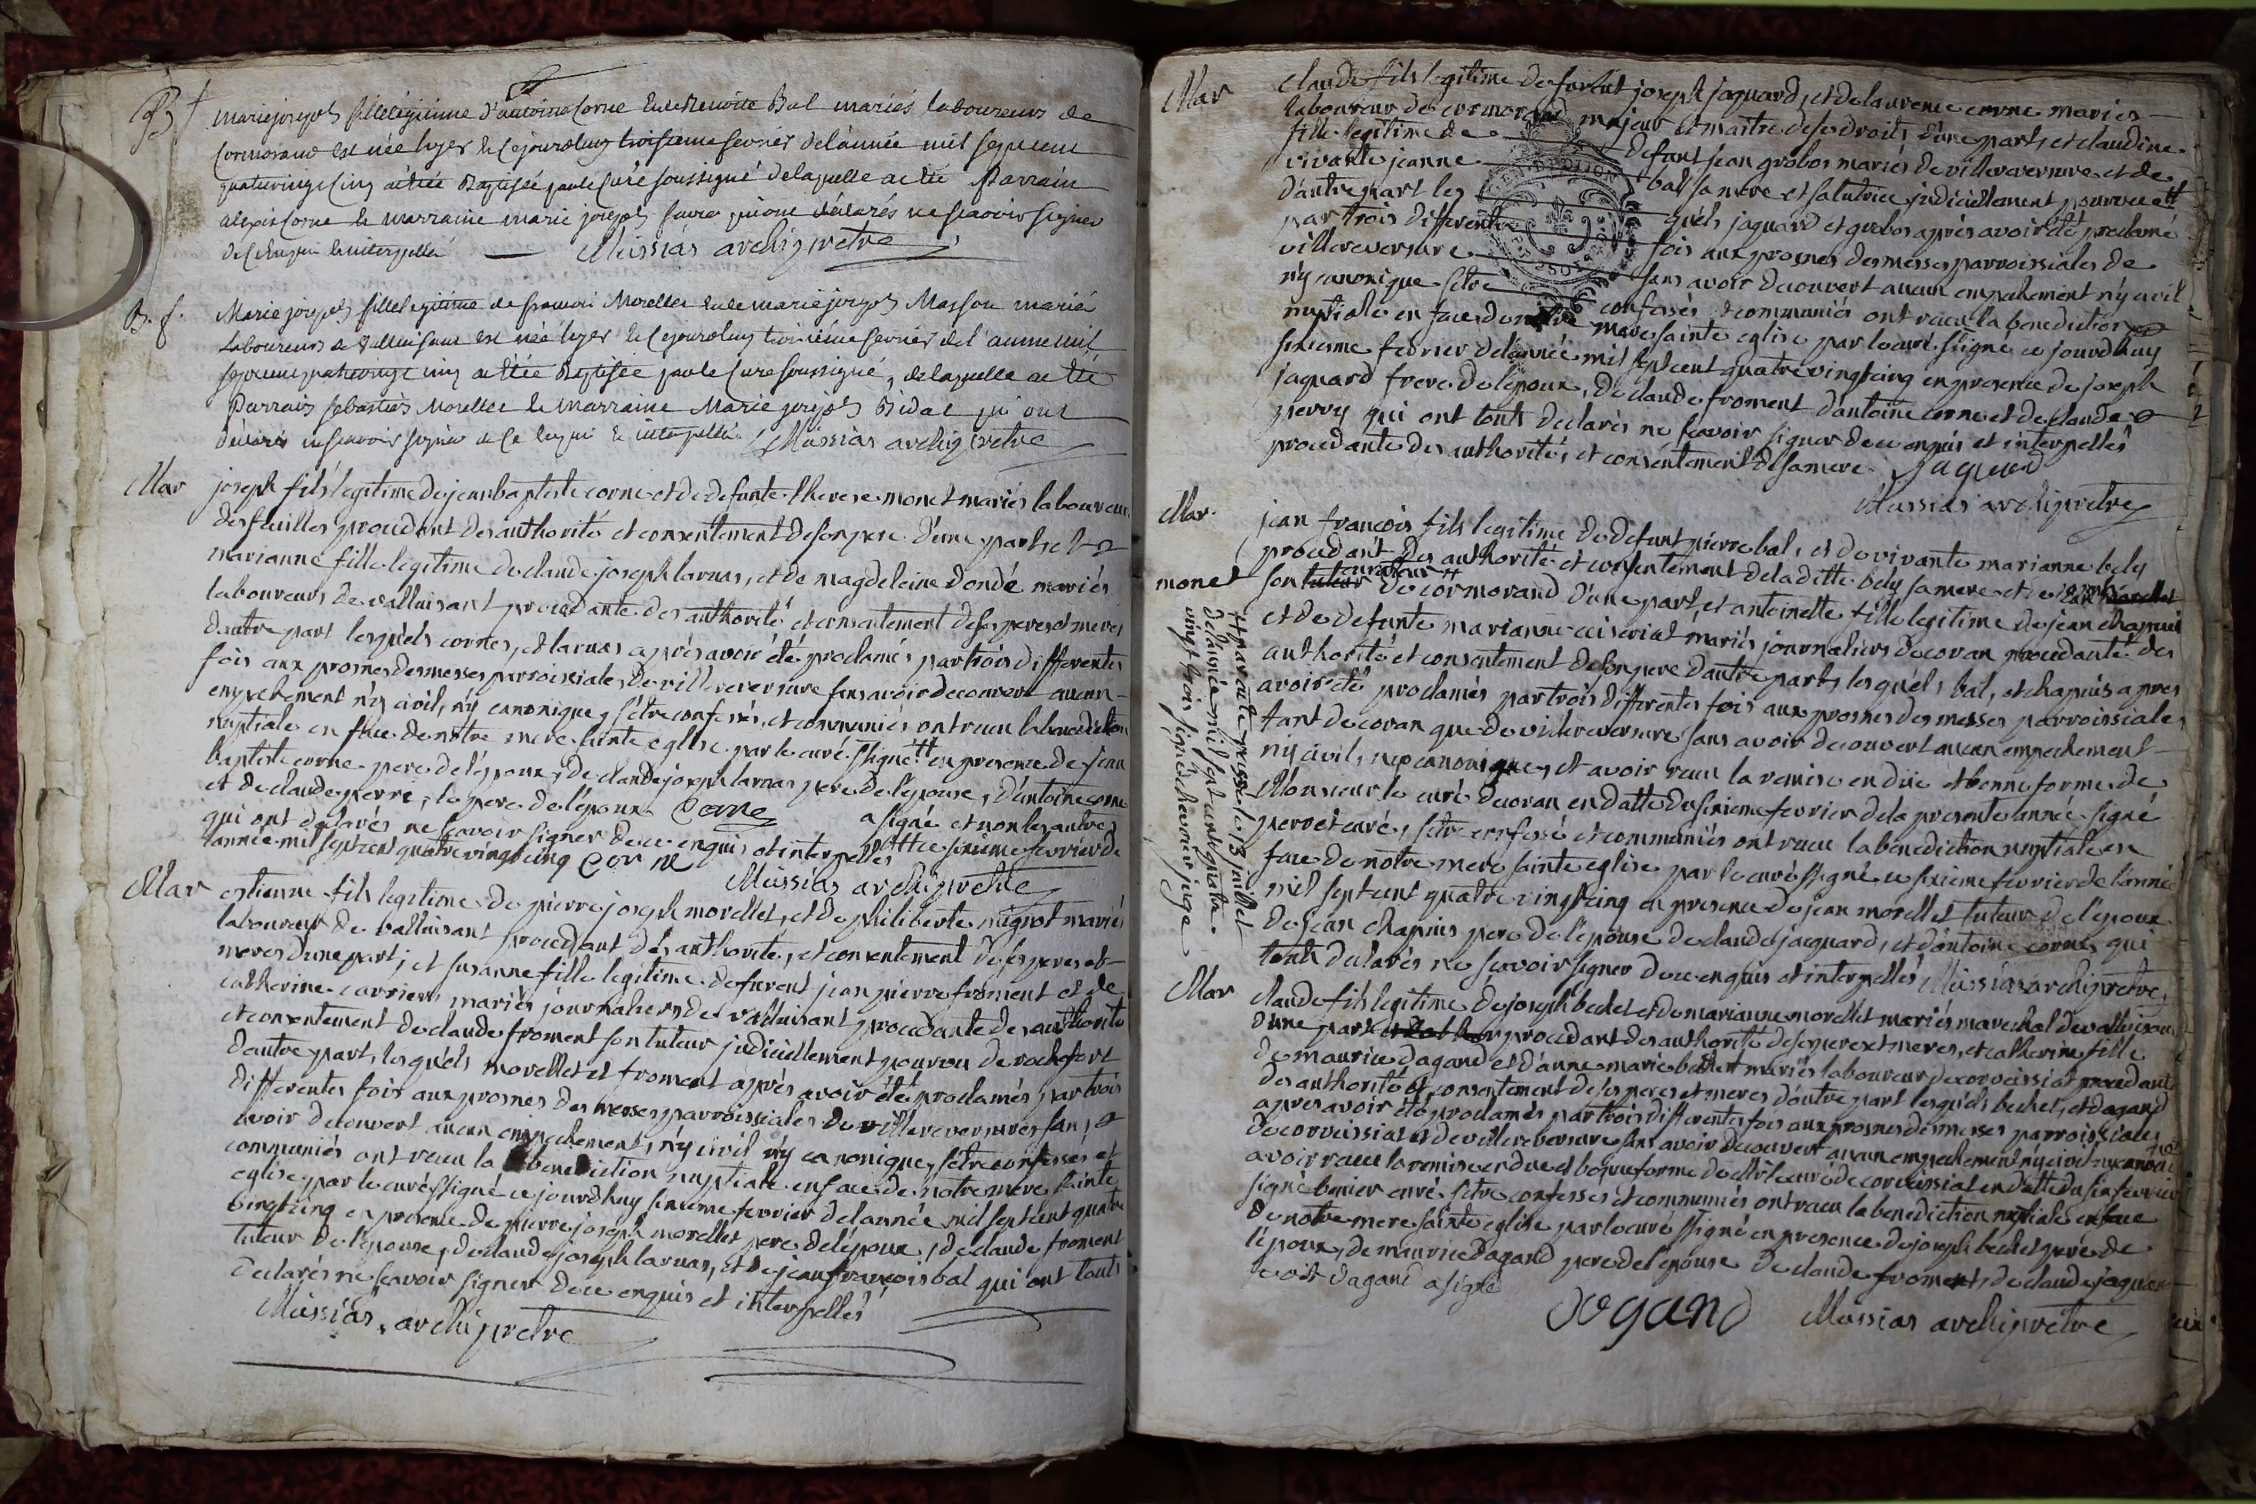 B f
marie joseph fille legitime d'antoine Corne et de Benoite Bal mariés laboureurs de
Cormorand est née hyer et ce jourdhuy troisieme fevrier de l'année mil sept cent
quatrevingt cinq a été Baptisée par le Curé soussigné de laquelle a été Parrain
alexis Corne et marraine marie joseph favre qui ont déclarés ne scavoir signer
de ce enquis et interpellés Mussias archiprêtre
B. f.
Marie joseph fille legitime de francois Morellet et de marie joseph Masson mariés
Laboureurs de Valluisant est née hyer et ce jourdhuy troisieme fevrier de l'année mil
sept cent quatrevingt cinq a été Baptisée par le Curé soussigné, de laquelle a été
Parrain sebastien Morellet et Marraine Marie joseph Bidal qui ont
déclarés ne scavoir signer de ce enquis et interpellés Mussias archiprêtre
Mar
joseph fils legitime de jean baptiste corne et de defunte therese monet mariés laboureurs
des feuilles procedant des authorité et consentement de son pere d'une part, et
marianne fille legitime de claude joseph larnas, et de magdeleine dondé mariés
laboureurs de valluisant procedante des authorité et consentement de ses pere et mere
d'autre part lesquels corne, et larnas après avoir été proclamés par trois differentes
fois aux prosnes des messes parroissiales de villereversure sans avoir decouvert aucun
empechement n'y civil, n'y canonique, s'être confessés, et communiés ont recu la benediction
nuptiale en face de nôtre mere sainte eglise par le curé ssigné tt en presence de jean
baptiste corne pere de l'époux, de claude joseph larnas pere de l'épouse, d'antoine corne
et de claude perre, le pere de l'époux Corne a signé et non les autres
qui ont declarés ne scavoir signer de ce enquis et interpellés tt ce sixieme fevrier de
l'année mil sept cent quatre vingt cinq cor ne
Mussias archiprêtre
Mar
estienne fils legitime de pierre joseph morellet, et de philiberte mignot mariés
laboureurs de valluisant procedant des authorité, et consentement de ses peres et
meres d'une part, et susanne fille legitime de furent jean pierre froment et de
catherine carrier mariés journaliers de valluisant procedante des authorité
et consentement de claude froment son tuteur judiciellement pourvu de rochefort
d'autre part, lesquels morellet et froment après avoir été proclamés par trois
differentes fois aux prosnes des messes parroissiales de villereversure sans
avoir decouvert aucun empechement, n'y civil n'y canonique, s'être confessés et
communiés ont recu la benediction nuptiale en face de nôtre mere sainte
eglise par le curé ssigné ce jourdhuy sixieme fevrier de l'année mil sept cent quatre
vingt cinq en presence de pierre joseph morellet pere de l'époux, de claude froment
tuteur de l'épouse, de claude joseph larnas, et de jean françois bal qui ont touts
declarés ne scavoir signer de ce enquis et interpellés
Mussias archiprêtre
Mar
claude fils legitime de furent joseph jaquard, et de laurence corne mariés
laboureur de cormorand majeur et maitre de ses droits d'une part, et claudine
fille legitime de defunt jean grobos mariés de villereversure et de
vivante jeanne bal sa mere et sa tutrice judiciellement pourvue tt
d'autre part les quels jaquard et grobos après avoir été proclamé
par trois differente fois aux prosnes des messes parroissiales de
villereversure sans avoir decouvert aucun empechement n'y civil
n'y canonique s'etre confessés et communiés ont recu la benediction
nuptiale en face de notre mere sainte eglise par le curé ssigné ce jourdhuy
sixieme fevrier de l'année mil sept cent quatre vingt cinq en presence de joseph
jaquard frere de l'epoux, de claude froment d'antoine corne et de claude
perry qui ont touts declarés ne scavoir signer de ce enquis et interpellés
procedante des authorité, et consentement de sa mere. Jaquard
Mussias archiprêtre
Mar
jean françois fils legitime de defunt pierre bal, et de vivante marianne bely
procedant des authorité et consentement de la ditte bely sa mere et de jean morellet
monet
son tuteur curateur tt de cormorand d'une part, et antoinette fille legitime de jean chapuis
et de defunte marianne mariés journaliers de coran procedante des
authorité et consentement de son pere d'autre part, lesquels bal, et chapuis apres
avoir été proclamés par trois differentes fois aux prosnes des messes parroissiales
tant de coran que de villereversure sans avoir decouvert aucun empechement
n'y civil, n'y canonique, et avoir recu la remise en düe et bonne forme de
Monsieur le curé de coran en datte du sixieme fevrier de la presente année signé
curé, s'etre confessé et communiés ont recu la bénédiction nuptiale en
face de notre mere sainte eglise par le curé ssigné ce sixieme fevrier de l'année
mil sept cent quatre vingt cinq en presence de jean morellet tuteur de l'epoux
de jean chapuis pere de l'épouse de claude jaquard, et d'antoine corne, qui
touts declarés ne scavoir signer de ce enquis et interpellés Mussias archiprêtre
tt par acte du 13 juillet
de l'année mil sept cent quatre
vingt trois signé chevrier juge
Mar
claude fils legitime de joseph bechet et de marianne morellet mariés marechal de valluisant
d'une part procedant des authorité de ses pere et meres, et catherine fille
de maurice dagand et d'anne marie bechet mariés laboureur de corveissiat procedante
des authorité et consentement de ses peres et meres d'autre part lesquels bechet, et dagand
apres avoir été proclamés par trois differentes fois aux prosnes des messes parroissiales
de corveissiat et de villereversure sans avoir decouvert aucun empechement n'y civil n'y canonique
avoir recu la remise en due et bonne forme de mr le curé de corveissiat en datte du six fevrier
signé curé s'etre confesses et communiés ont recu la benediction nuptiale en face
de notre mere sainte eglise par le curé ssigné en presence de joseph bechet pere de
l'époux, de maurice dagand pere de l'épouse de claude froment, de claude jaquard
dagand a signé
Dogand Mussias archiprêtre